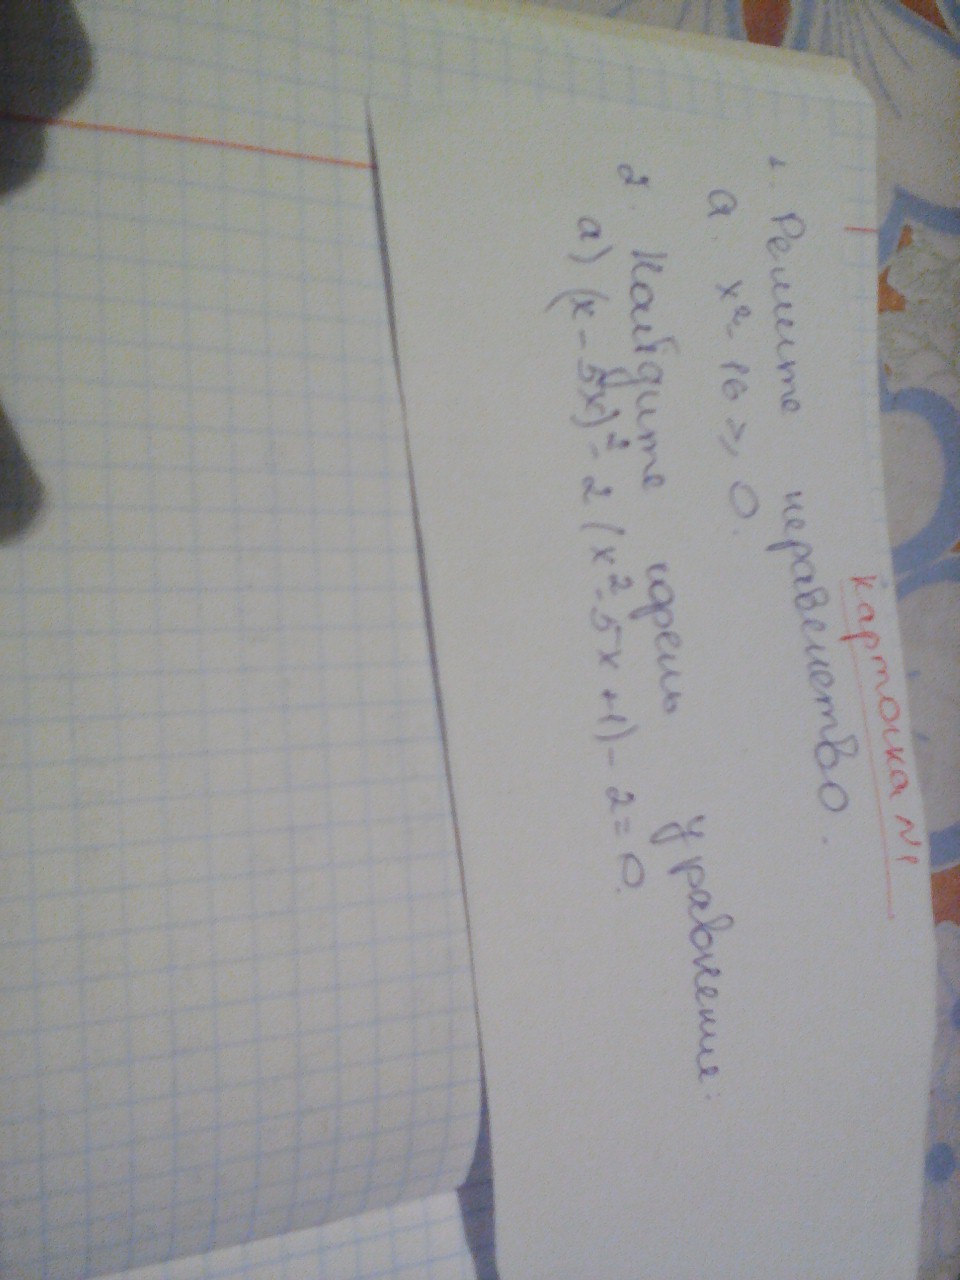 карточка №1
1. Решите неравенство.
а. x² - 16 ⩾ 0.
2. Найдите корень уравнение:
а) (x - 5x)² - 2(x² - 5x + 1) - 2 = 0.